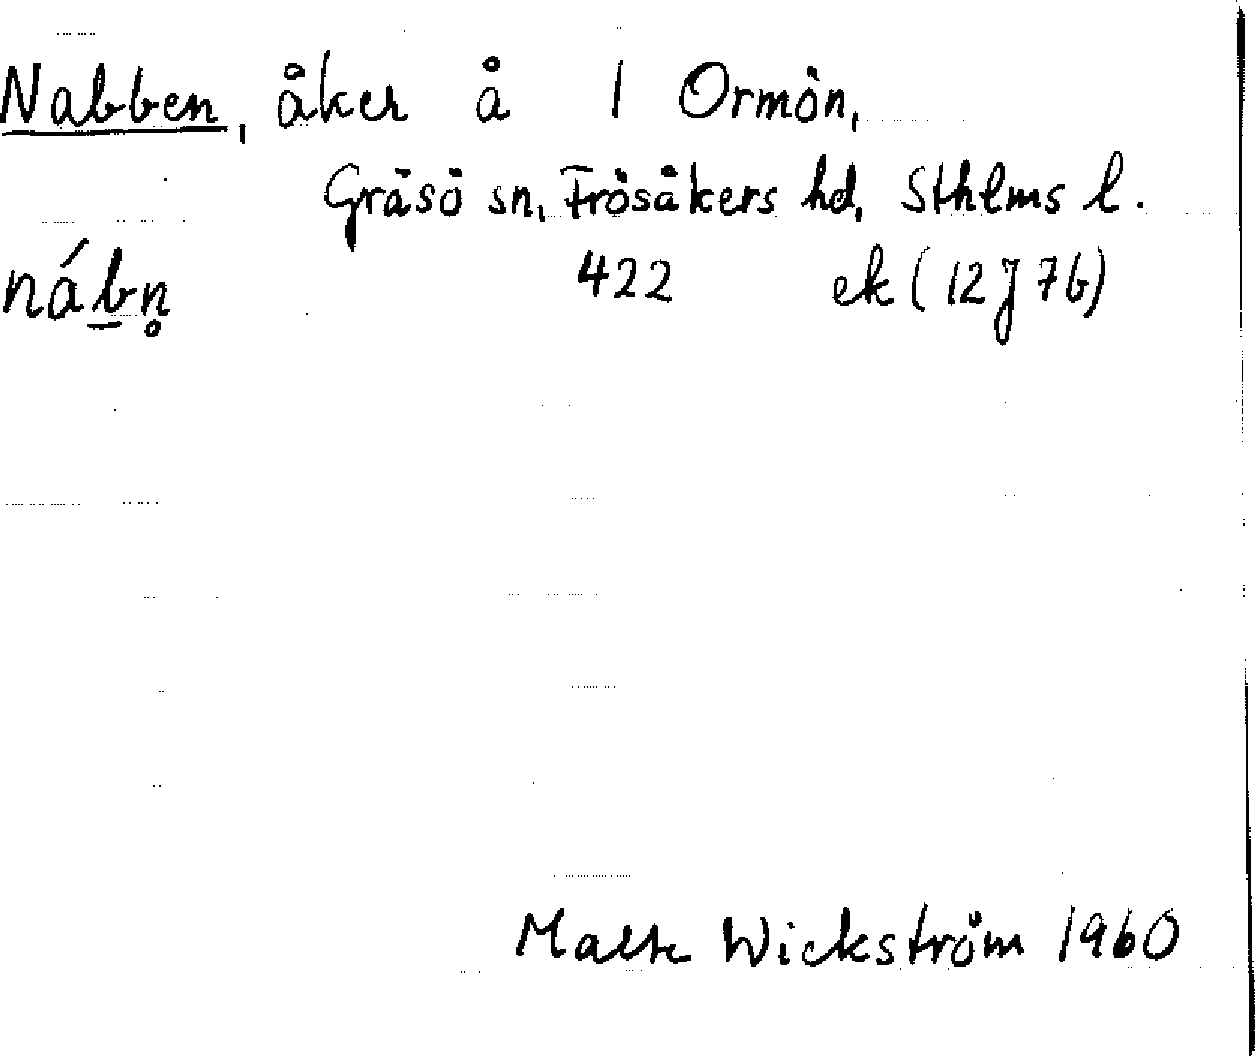 Nabben, åker å 1 Ormön,
Gräsö sn, Frösåkers hd, Sthlms l.
náb̲n̥ 422 ek (12J7b)
Malte Wickström 1960